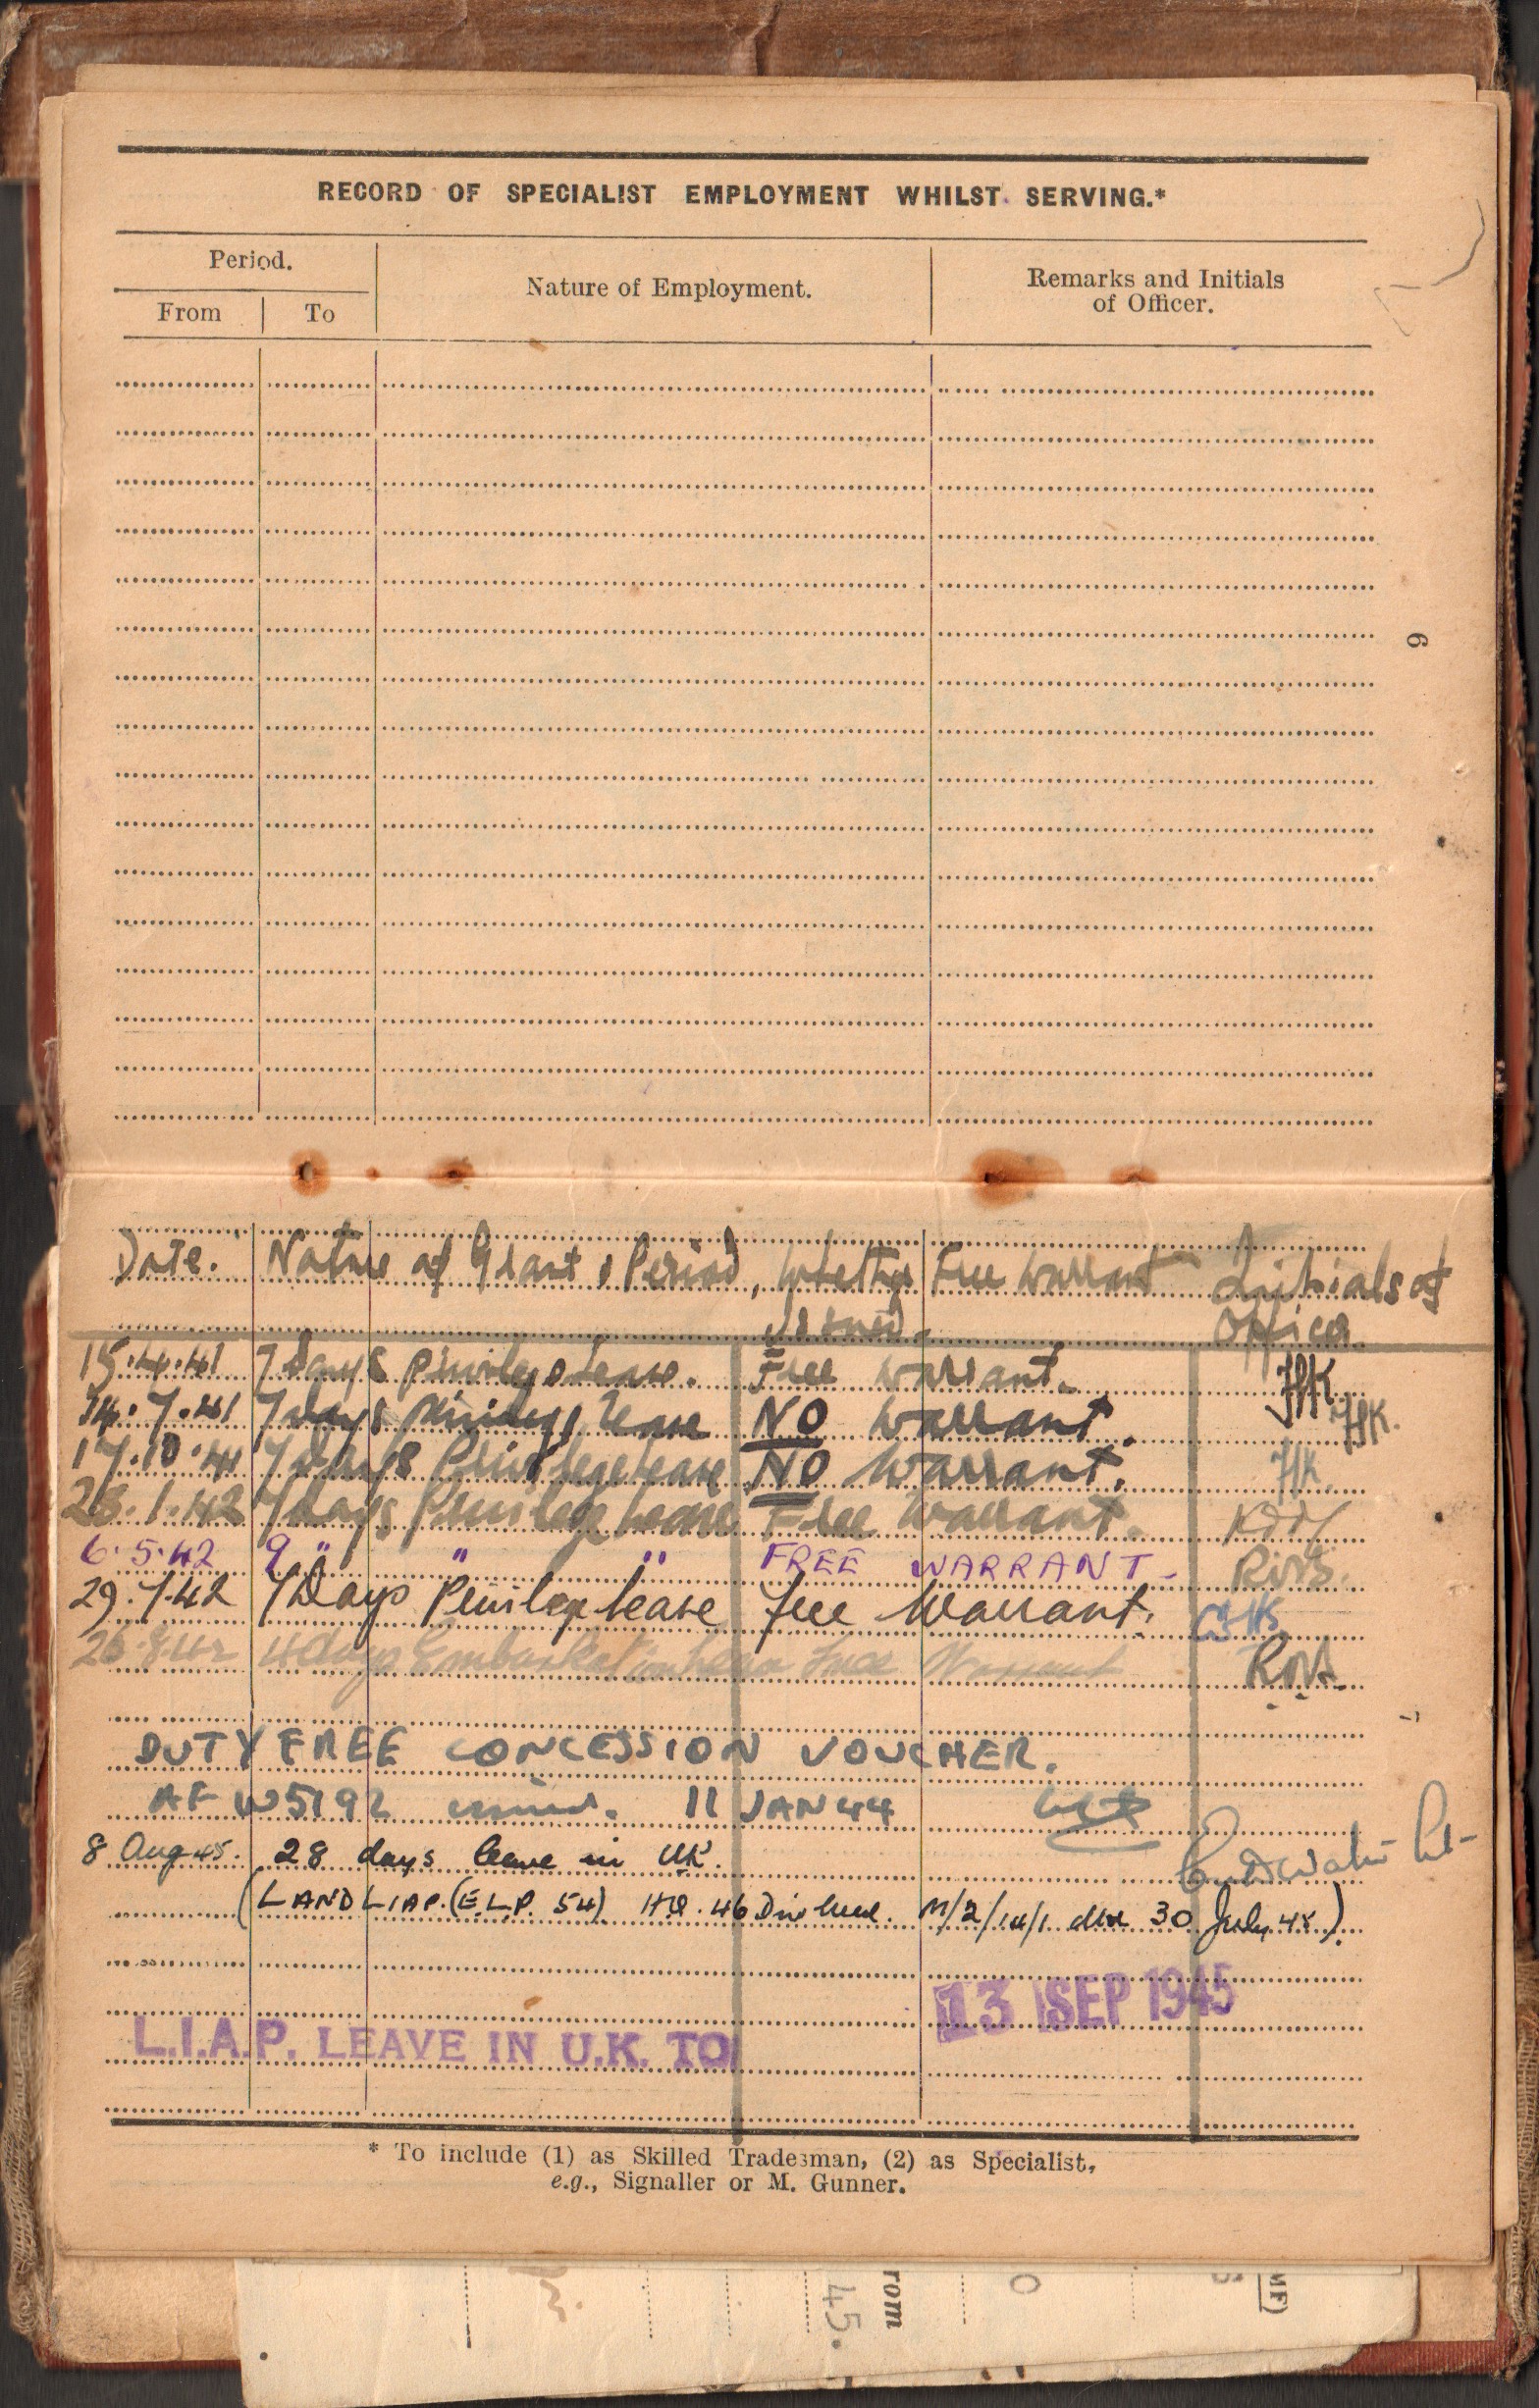 RECORD OF SPECIALIST EMPLOYMENT WHILST SERVING.*
Period.
From To
Nature of Employment.
Remarks and Initials
of Officer.
6
Date. Nature of Grant & Period, whether Free Warrant Initials of
issued. Officer
15.4.41 7 days privilege leave. Free Warrant. JHK
14.7.41 7 days privilege leave NO Warrant. JHK.
17.10.41 7 days Privilege leave NO Warrant. JHK
28.1.42 7 days Privilege leave Free Warrant.
6.5.42 9 " " " FREE WARRANT -
29.7.42 7 Days Privilege leave free Warrant.
26.8.42 4 days Embarkation leave Free Warrant
DUTY FREE CONCESSION VOUCHER.
AF W5192 issued. 11 JAN 44
8 Aug 45. 28 days leave in UK.
(LAND LIAP. (E.L.P. 54) HQ. 46 Div M/2/14/1 dtd 30 July 45).
13 SEP 1945
L.I.A.P. LEAVE IN U.K. TO
* To include (1) as Skilled Tradesman, (2) as Specialist,
e.g., Signaller or M. Gunner.
rom
45.
0
MF)